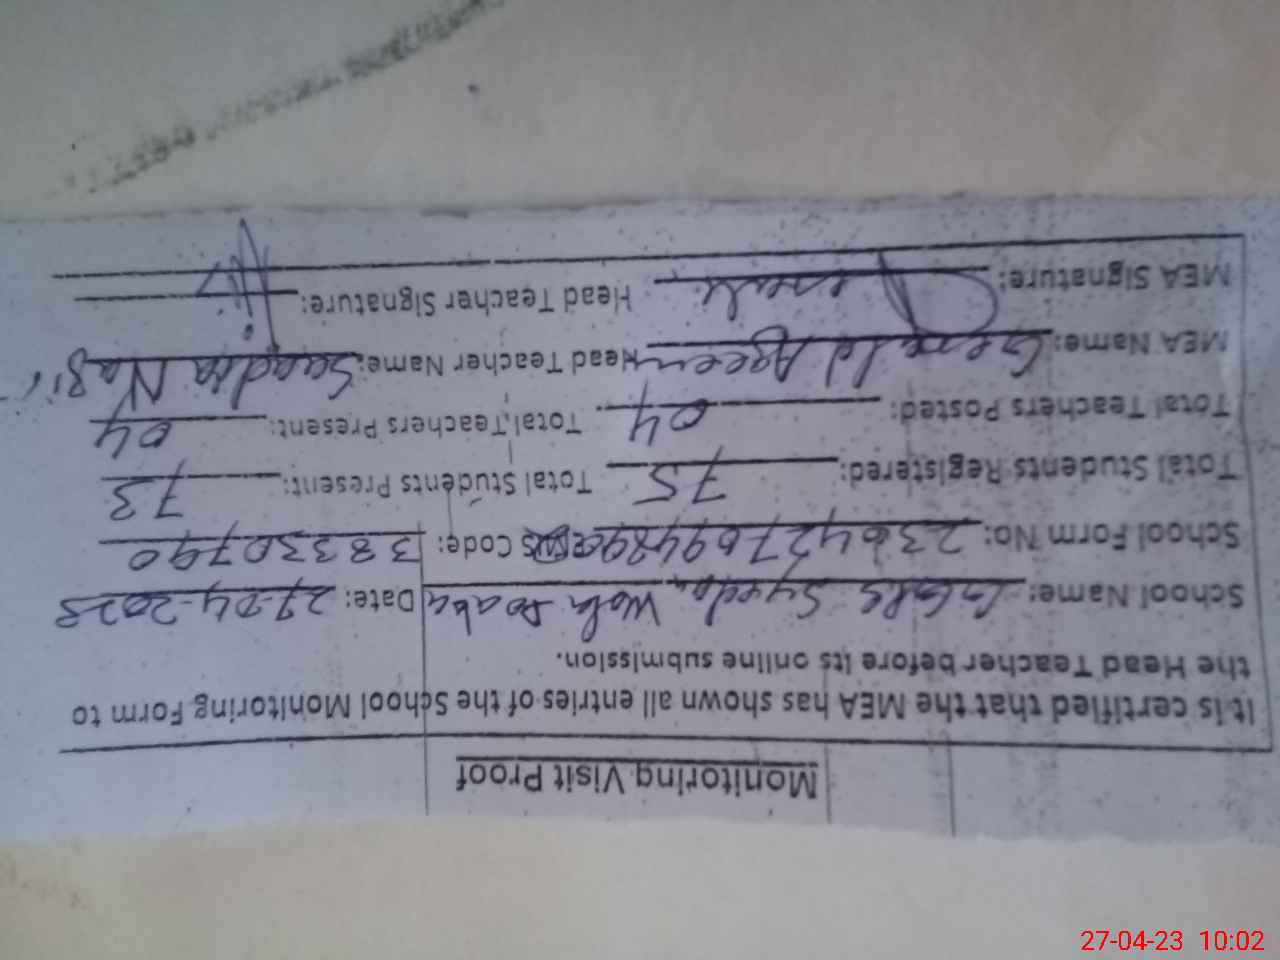 Monitoring Visit Proof
It is certified that the MEA has shown all entries of the School Monitoring Form to
the Head Teacher before its online submission.
School Name: Syeda Wala Date: 27-04-2023
School Form No: Code: 38330790
Total Students Registered: 75 Total Students Present: 73
Total Teachers Posted: 04 Total Teachers Present: 04
MEA Name: Gerald Head Teacher Name: Saadia Nazir
MEA Signature: Head Teacher Signature:
27-04-23 10:02